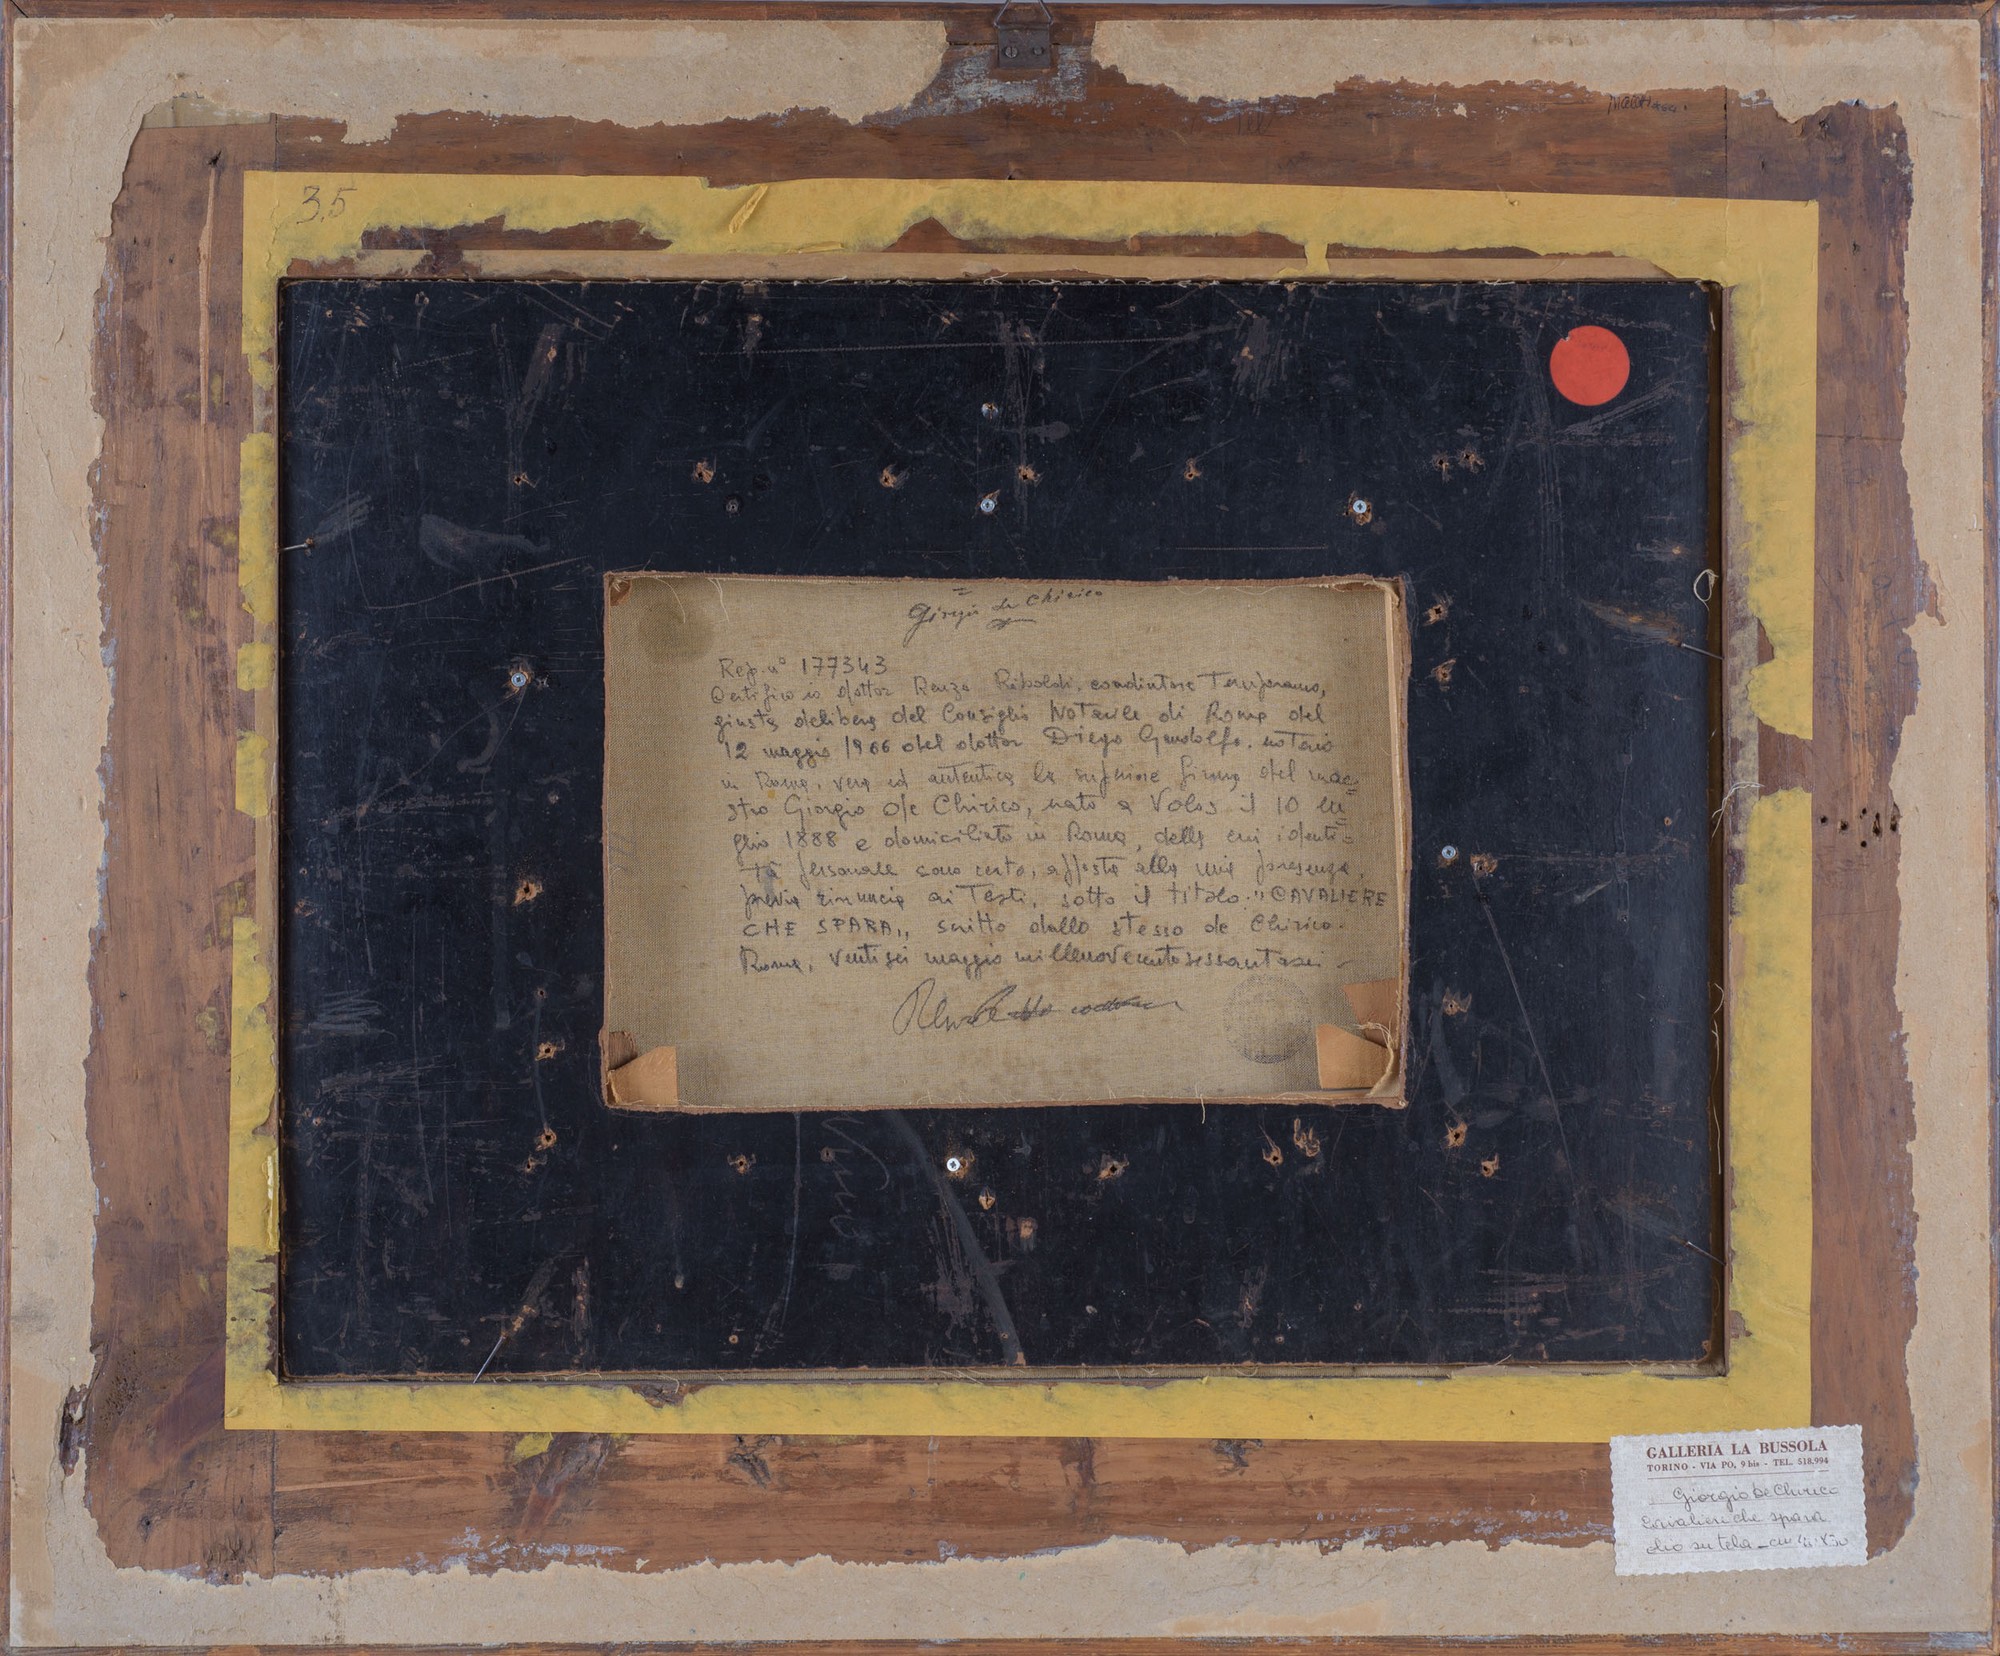 35
Giorgio de Chirico
Rep. n° 177343
Certifico io dottor Renzo Riboldi, coadiutore Temporaneo,
giusta delibera del Consiglio Notarile di Roma del
12 maggio 1966 del dottor Diego Gandolfo, notaio
in Roma, vera ed autentica la superiore firma del mae=
stro Giorgio de Chirico, nato a Volos il 10 lu=
glio 1888 e domiciliato in Roma, della cui identi=
tà personale sono certo, apposta alla mia presenza,
previa rinuncia ai Testi, sotto il titolo: "CAVALIERE
CHE SPARA,, scritto dallo stesso de Chirico.
Roma, ventisei maggio millenovecentosessantasei -
GALLERIA LA BUSSOLA
TORINO - VIA PO, 9 bis - TEL. 518.994
Giorgio De Chirico
Cavaliere che spara
olio su tela - cm